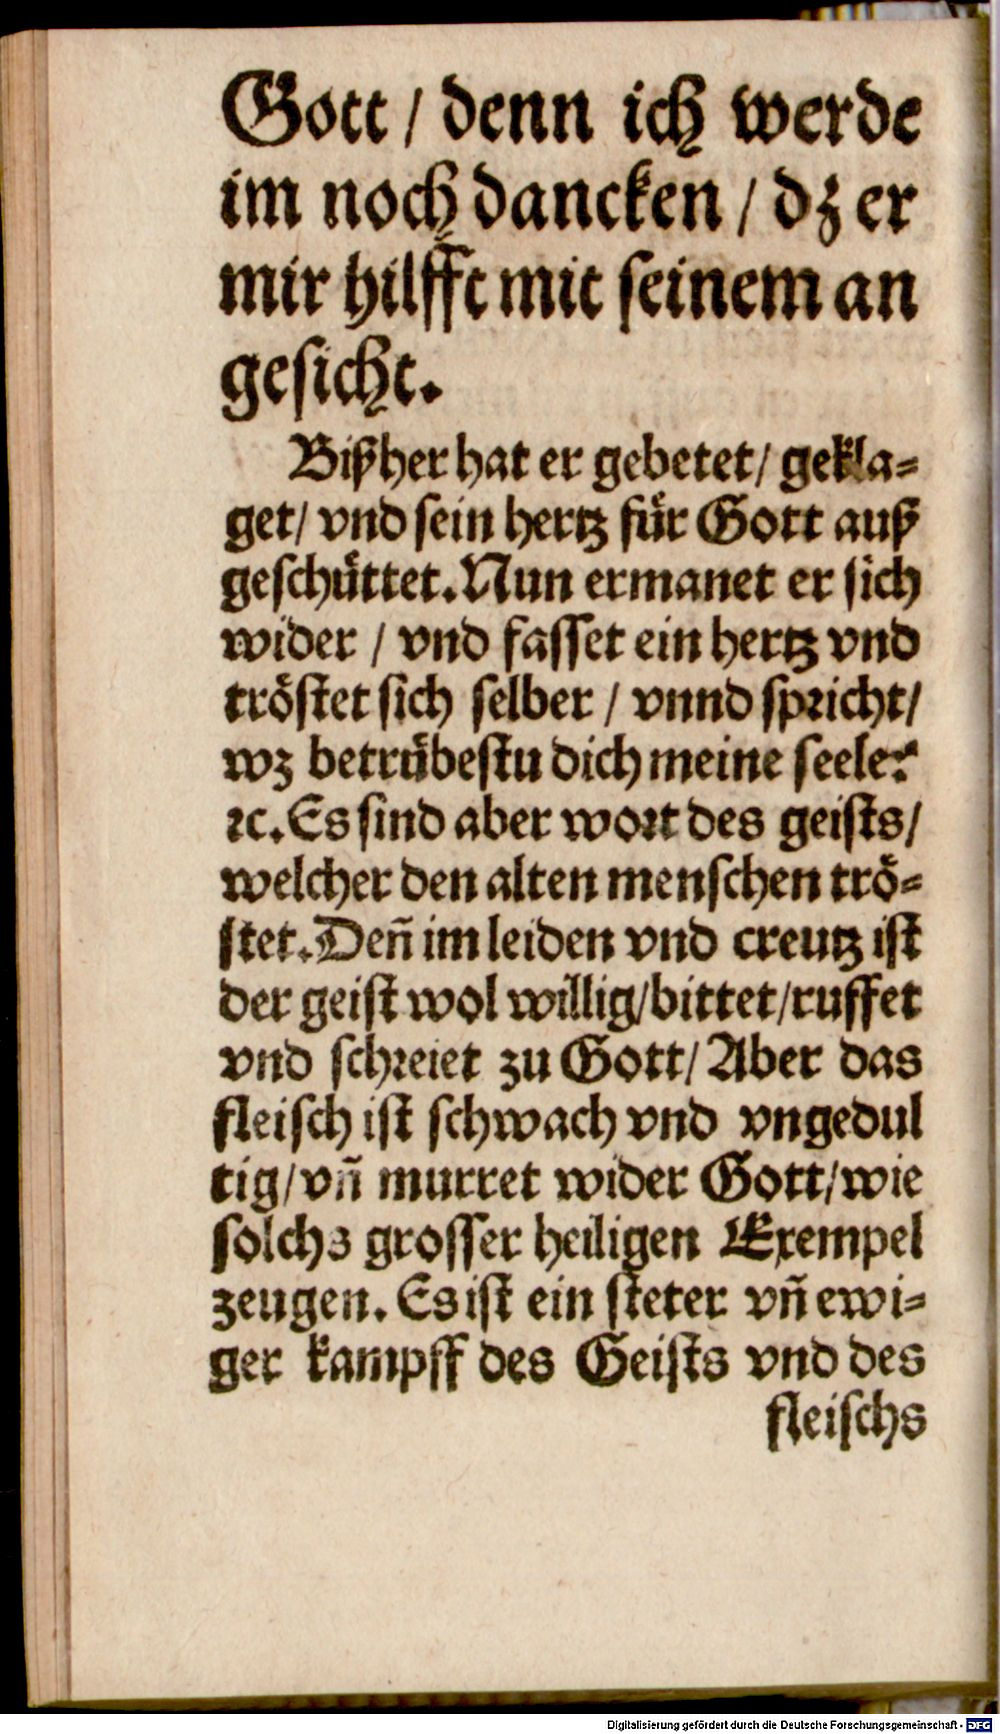 Gott / denn ich werde
im noch dancken / dz er
mir hilfft mit seinem an
gesicht.
Bißher hat er gebetet / gekla⸗
get / vnd sein hertz für Gott auß
geschüttet. Nun ermanet er sich
wider / vnd fasset ein hertz vnd
tröstet sich selber / vnnd spricht /
wz betrübestu dich meine seele?
ꝛc. Es sind aber wort des geists /
welcher den alten menschen trö⸗
stet. Deñ im leiden vnd creutz ist
der geist wol willig / bittet / ruffet
vnd schreiet zu Gott / Aber das
fleisch ist schwach vnd vngedul
tig / vñ murret wider Gott / wie
solchs grosser heiligen Exempel
zeugen. Es ist ein steter vñ ewi⸗
ger kampff des Geists vnd des
fleischs
Digitalisierung gefördert durch die Deutsche Forschungsgemeinschaft - DFG